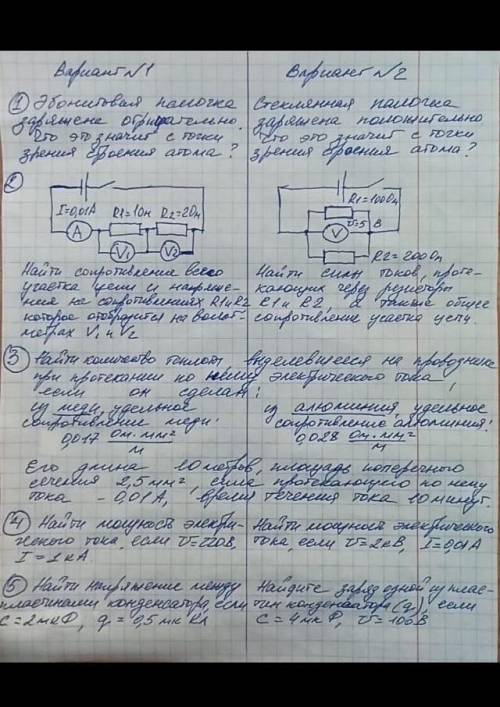 Вариант №1
Вариант №2
① Эбонитовая палочка
заряжена отрицательно.
Что это значит с точки
зрения строения атома?
Стеклянная палочка
заряжена положительно
Что это значит с точки
зрения строения атома?
②
I=0,01А R1=1Ом R2=2Ом
A V1 V2
Найти сопротивление всего
участка цепи и напряже-
ния на сопротивлениях R1 и R2
которое отобразится на вольт-
метрах V1 и V2
R1=100Ом
V U=5 В
R2=200Ом
Найти силы токов, проте-
кающих через резисторы
R1 и R2, а также общее
сопротивление участка цепи.
③ Найти количество теплоты выделевшееся на проводнике
при протекании по нему электрического тока,
если он сделан:
из меди, удельное
сопротивление меди:
0,017 Ом·мм²/м
из алюминия, удельное
сопротивление алюминия:
0,028 Ом·мм²/м
Его длина 10 метров, площадь поперечного
сечения 2,5мм², сила протекающего по нему
тока - 0,01А, время течения тока 10 минут.
④ Найти мощность электри-
ческого тока, если U=220В,
I=1кА
Найти мощность электрического
тока, если U=2кВ, I=0,01А
⑤ Найти напряжение между
пластинами конденсатора, если
C=2мкФ, q=0,5мкКл
Найдите заряд одной из плас-
тин конденсатора (q), если
C=4мкФ, U=100В